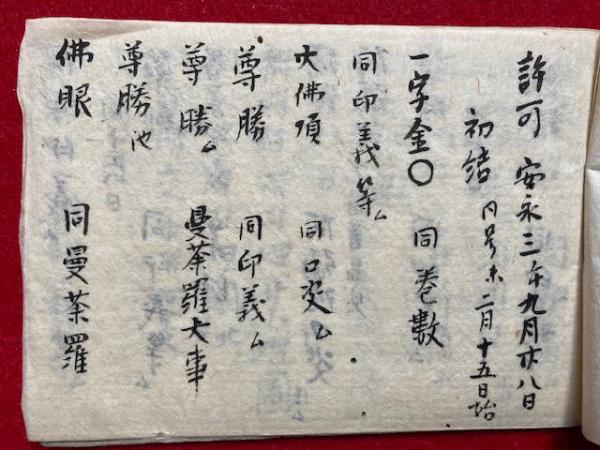 許可 安永三年九月廿八日
初結 同号末 二月十五日始
一字金〇 同巻数
同印義等ム
大佛頂 同口决ム
尊勝 同印義ム
尊勝ム 曼荼羅大事
尊勝池
佛眼 同曼荼羅